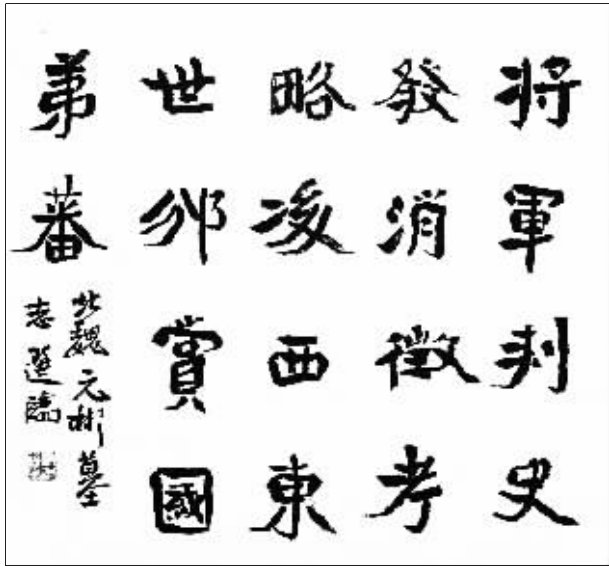 將軍刺史
發消徵考
略凌西東
世邠賞國
弟蕃
北魏元彬墓
志選臨